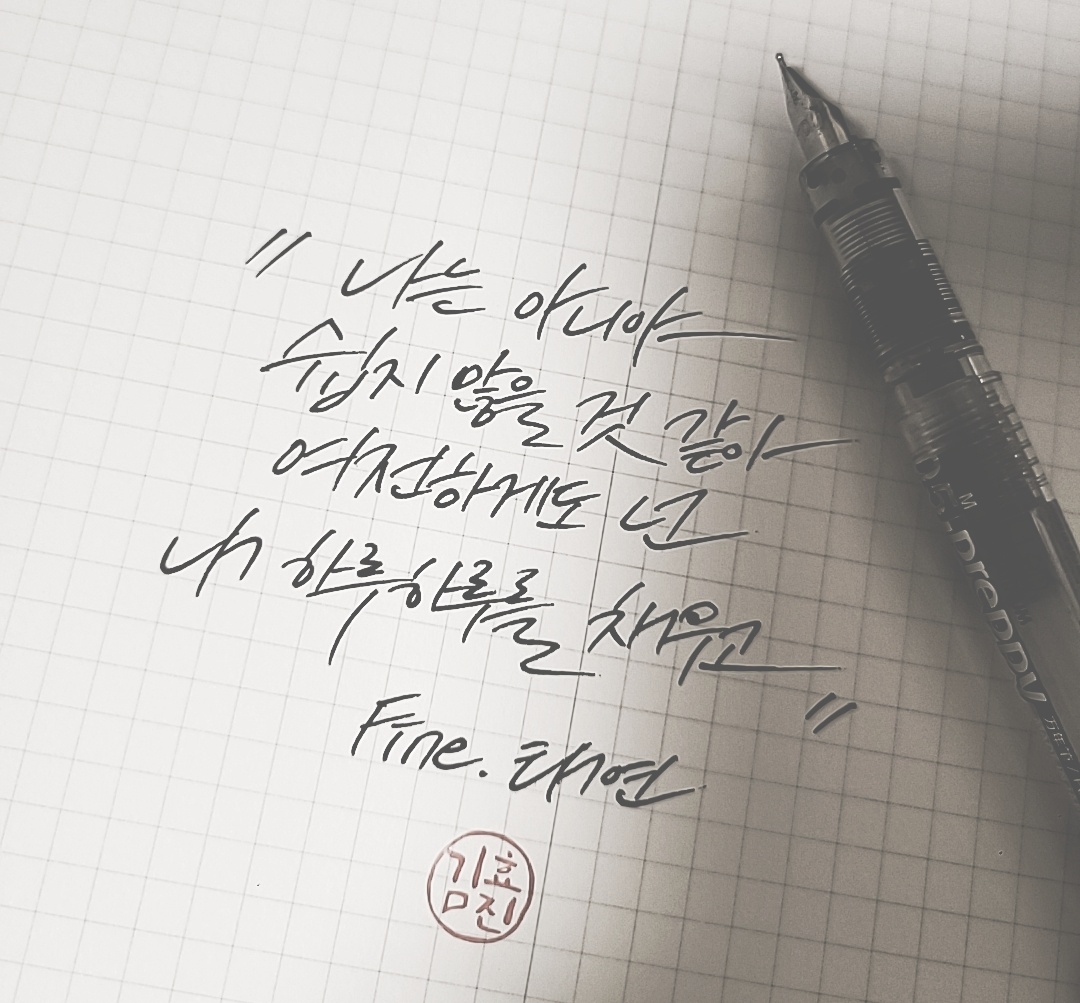 "나는 아니야
쉽지 않을 것 같아
여전하게도 넌
내 하루하루를 채워"
Fine. 태연
김효진
M
PREPPY